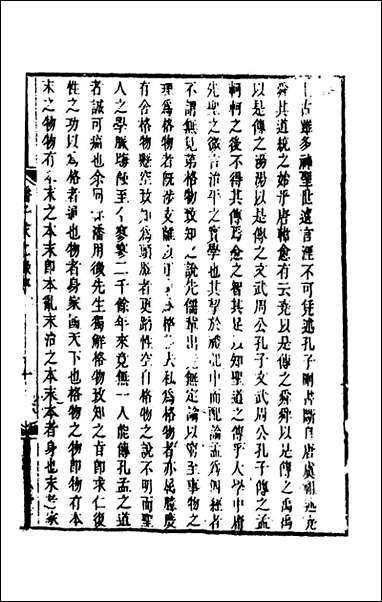 上古雖多神聖世遠言湮不可凭述孔子刪書斷自唐虞祖述堯
舜其道統之始乎唐韓愈有云堯以是傳之舜舜以是傳之禹禹
以是傳之湯湯以是傳之文武周公孔子文武周公孔子傳之孟
軻軻之後不得其傳焉愈之智其足以知聖道之傳乎大學中庸
先聖之微言治平之實學也其摯於戴記中而配論孟為四經者
不謂無見第格物致知之說先儒輩出無定論以窮至事物之
理為格物者既涉支離以格去私為格者亦屬臆度
有舍格物懸空致知為頭腦者更蹈性空自格物之說不明而聖
人之學脈蝕至今寥寥二千餘年來竟無一人能傳孔孟之道
者誠可痛也余同潘用微先生獨解格物致知之旨即求仁復
性之功以為格者通也物者身家國天下也格物之物即物有本
末之物物有本末之本末即本亂末治之本末本者身也末者家